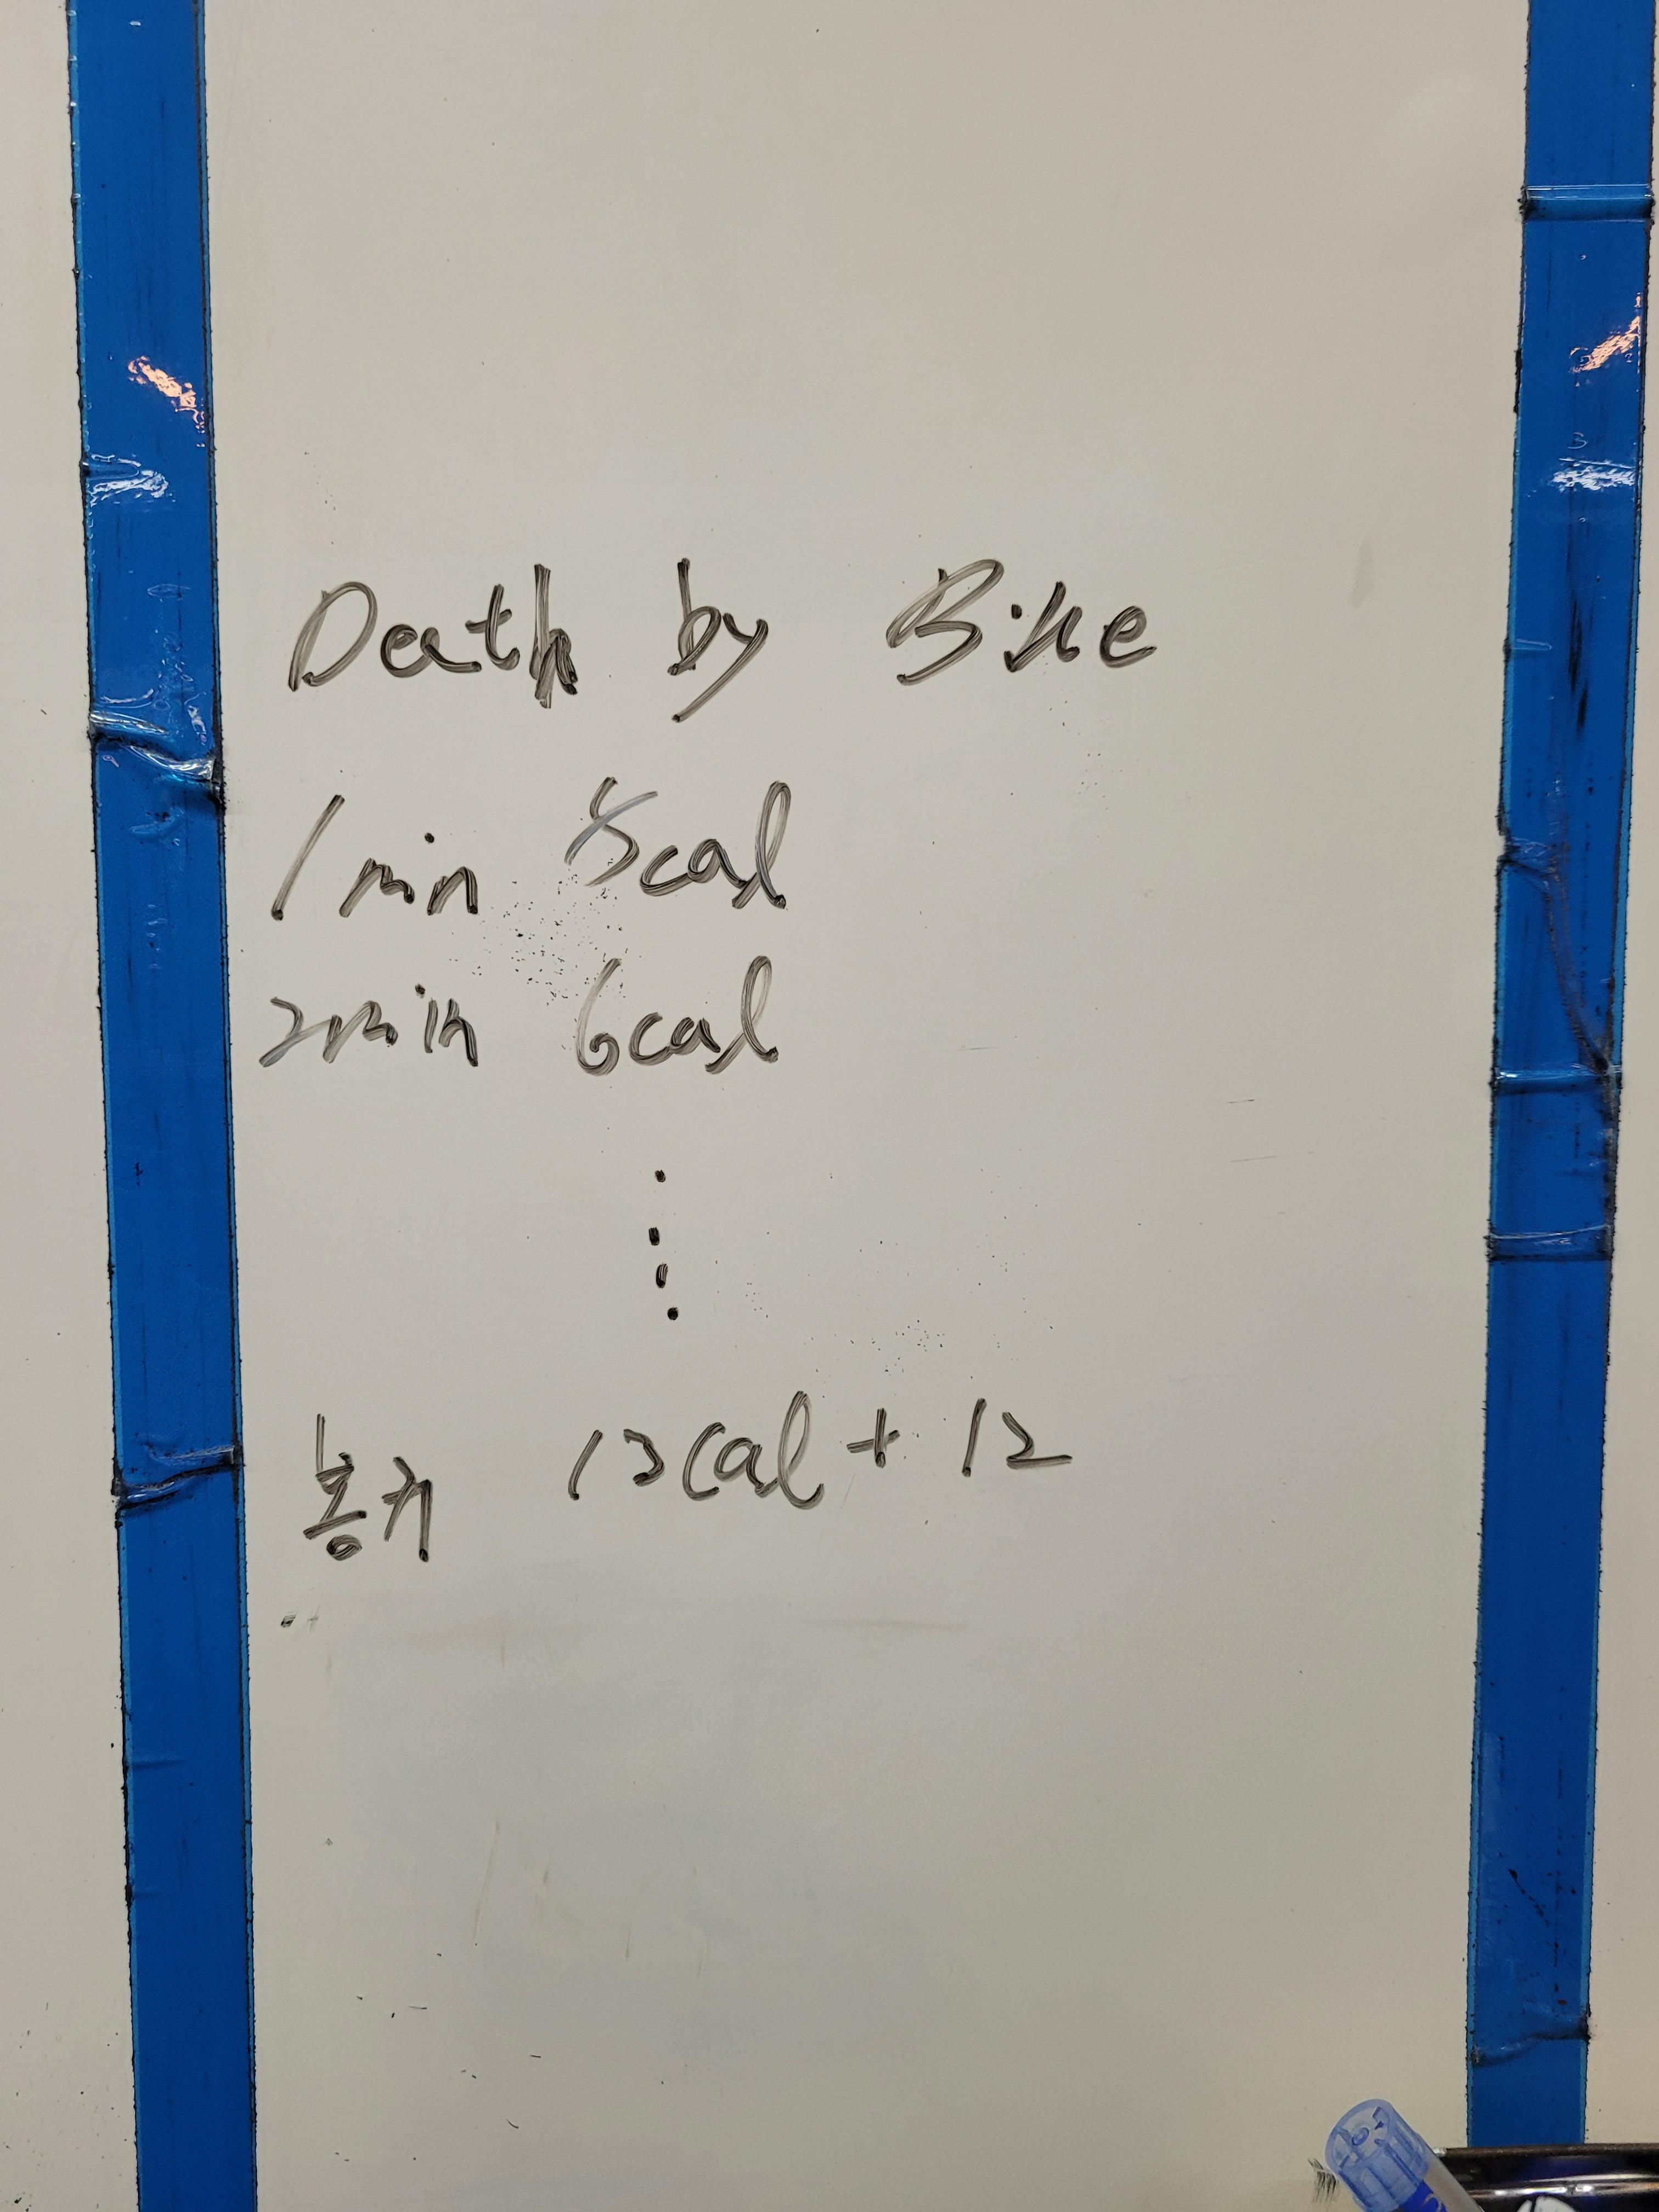 Death by Bike
1 min 5cal
2min 6cal
⋮
봉커 13cal + 12